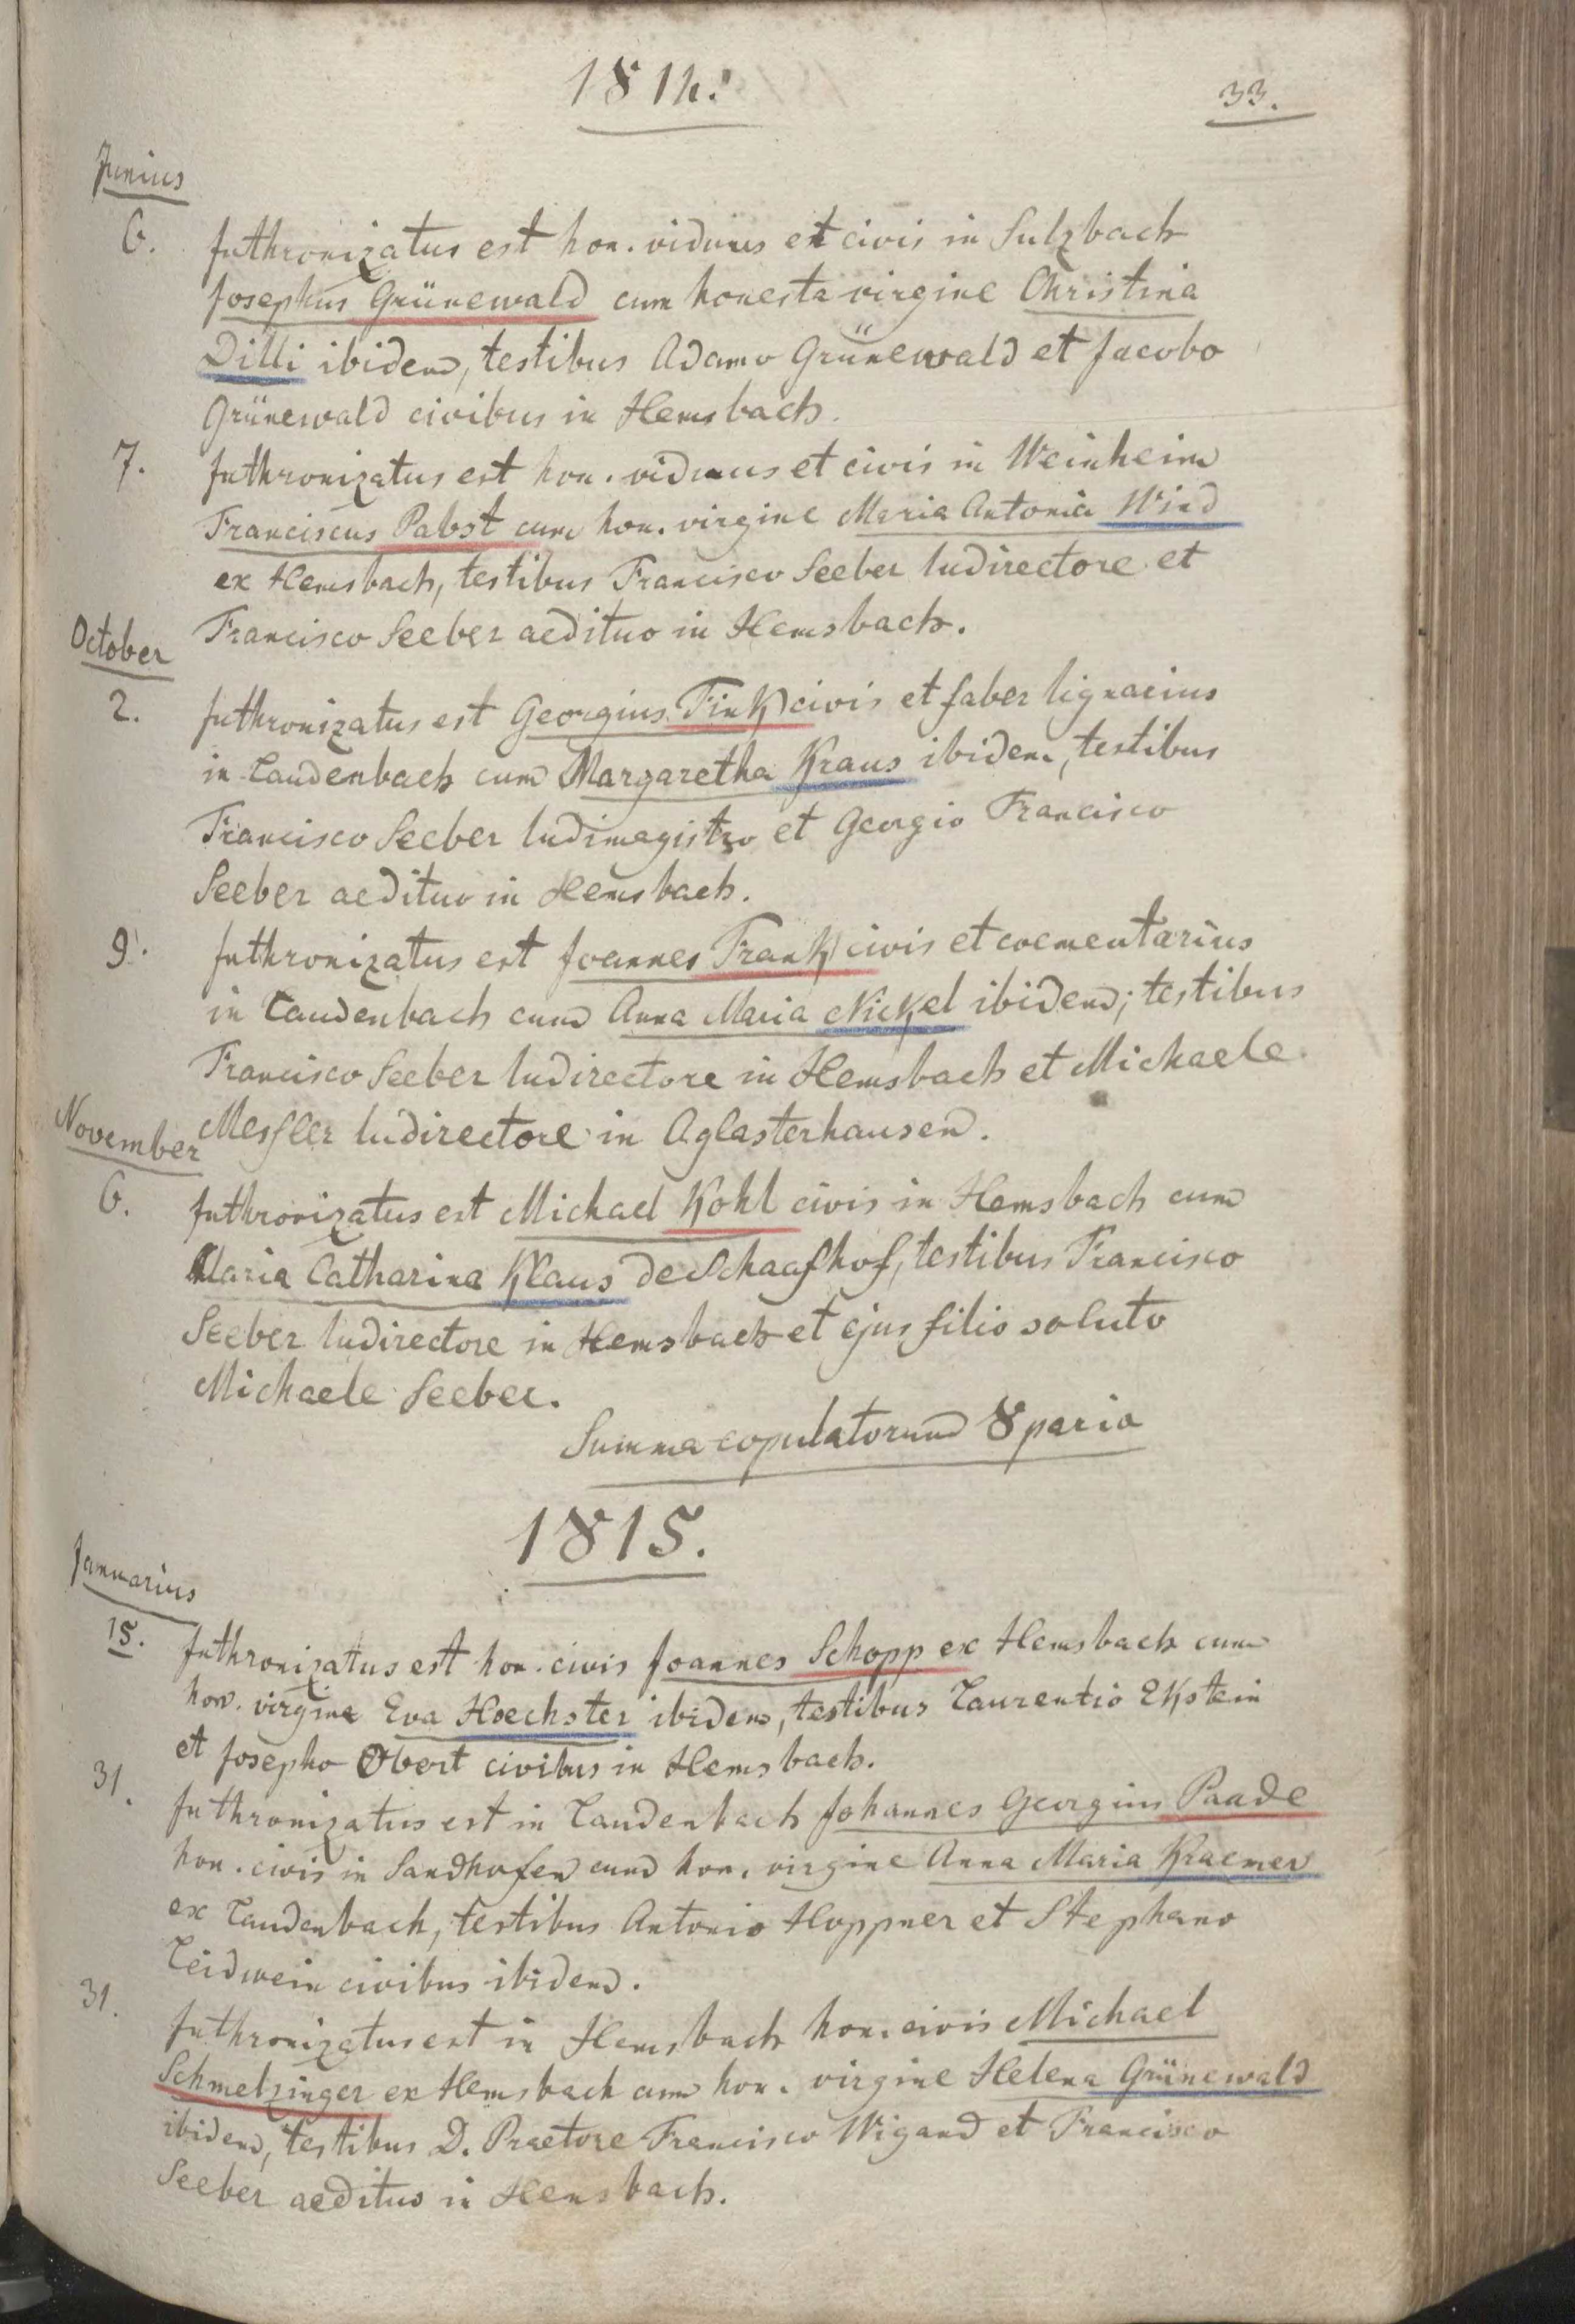 1814.
33.
Junius
6. Inthronizatus est hon. viduus et civis in Sulzbach
Josephus Grünewald cum honesta virgine Christina
Dilli ibidem, testibus Adamo Grünewald et Jacobo
Grünewald civibus in Hemsbach.
7. Inthronizatus est hon. viduus et civis in Weinheim
Franciscus Pabst cum hon. virgine Maria Antonia Wind
ex Hemsbach, testibus Francisco Seeber ludirectore et
Francisco Seeber aedituo in Hemsbach.
October
2. Inthronizatus est Georgius Fink civis et faber lignarius
in Laudenbach cum Margaretha Kraus ibidem, testibus
Francisco Seeber ludimagistro et Georgio Francisco
Seeber aedituo in Hemsbach.
9. Inthronizatus est Joannes Frank civis et coementarius
in Laudenbach cum Anna Maria Nickel ibidem; testibus
Francisco Seeber ludirectore in Hemsbach et Michaele
Messler ludirectore in Aglasterhausen.
November
6. Inthronizatus est Michael Kohl civis in Hemsbach cum
Maria Catharina Klaus de Schaafhof, testibus Francisco
Seeber ludirectore in Hemsbach et ejus filio soluto
Michaele Seeber.
Summa copulatorum 8 paria
1815.
Januarius
15. Inthronizatus est hon. civis Joannes Schopp ex Hemsbach cum
hon. virgine Eva Hoechster ibidem, testibus Laurentio Ekstein
et Josepho Obert civibus in Hemsbach.
31. Inthronizatus est in Laudenbach Johannes Georgius Paade
hon. civis in Sandhofen cum hon. virgine Anna Maria Kraemer
ex Laudenbach, testibus Antonio Hoppner et Stephano
Leidwein civibus ibidem.
31. Inthronizatus est in Hemsbach hon. civis Michael
Schmelzinger ex Hemsbach cum hon. virgine Helena Grünewald
ibidem, testibus D. Praetore Francisco Wigand et Francisco
Seeber aedituo in Hemsbach.